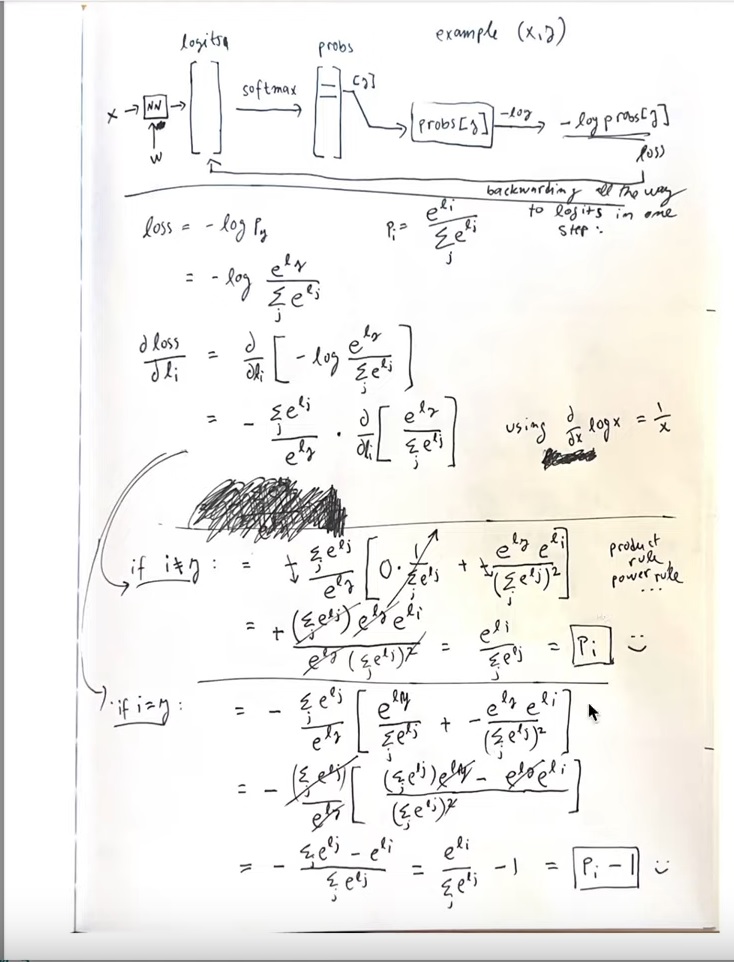 example (x,y)
logits probs
x → NN → softmax [y] probs[y] -log → -log probs[y]
w
loss
backwarding all the way
to logits in one
step:
loss = -log P_y P_i = e^{l_i} / Σ_j e^{l_j}
= -log e^{l_y} / Σ_j e^{l_j}
∂loss/∂l_i = ∂/∂l_i [ -log e^{l_y} / Σ_j e^{l_j} ]
= - Σ_j e^{l_j} / e^{l_y} · ∂/∂l_i [ e^{l_y} / Σ_j e^{l_j} ] using ∂/∂x log x = 1/x
if i≠y: = + Σ_j e^{l_j} / e^{l_y} [ 0 · 1/Σ_j e^{l_j} + + e^{l_y} e^{l_i} / (Σ_j e^{l_j})^2 ] product
rule,
power rule
...
= + (Σ_j e^{l_j}) e^{l_y} e^{l_i} / e^{l_y} (Σ_j e^{l_j})^2 = e^{l_i} / Σ_j e^{l_j} = P_i
if i=y: = - Σ_j e^{l_j} / e^{l_y} [ e^{l_y} / Σ_j e^{l_j} + - e^{l_y} e^{l_i} / (Σ_j e^{l_j})^2 ]
= - (Σ_j e^{l_j}) / e^{l_y} [ (Σ_j e^{l_j}) e^{l_y} - e^{l_y} e^{l_i} / (Σ_j e^{l_j})^2 ]
= - Σ_j e^{l_j} - e^{l_i} / Σ_j e^{l_j} = e^{l_i} / Σ_j e^{l_j} - 1 = P_i - 1